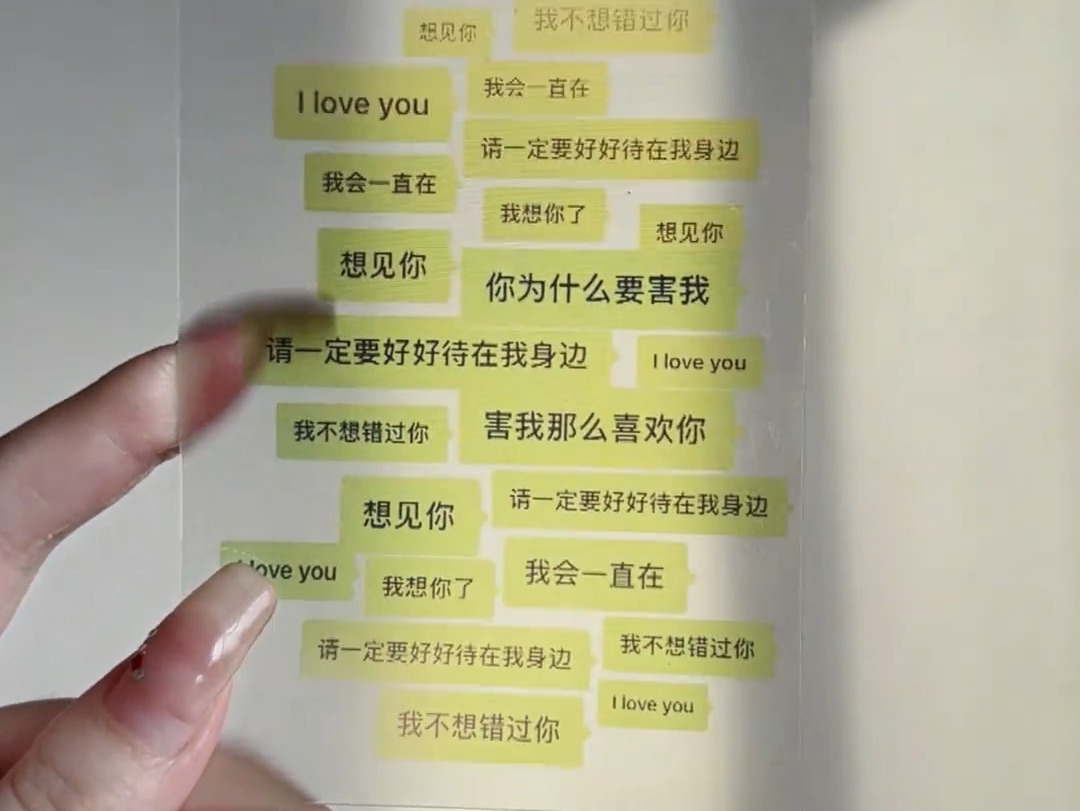 想见你
我不想错过你
I love you
我会一直在
请一定要好好待在我身边
我会一直在
我想你了
想见你
想见你
你为什么要害我
请一定要好好待在我身边
I love you
我不想错过你
害我那么喜欢你
想见你
请一定要好好待在我身边
love you
我想你了
我会一直在
请一定要好好待在我身边
我不想错过你
I love you
我不想错过你